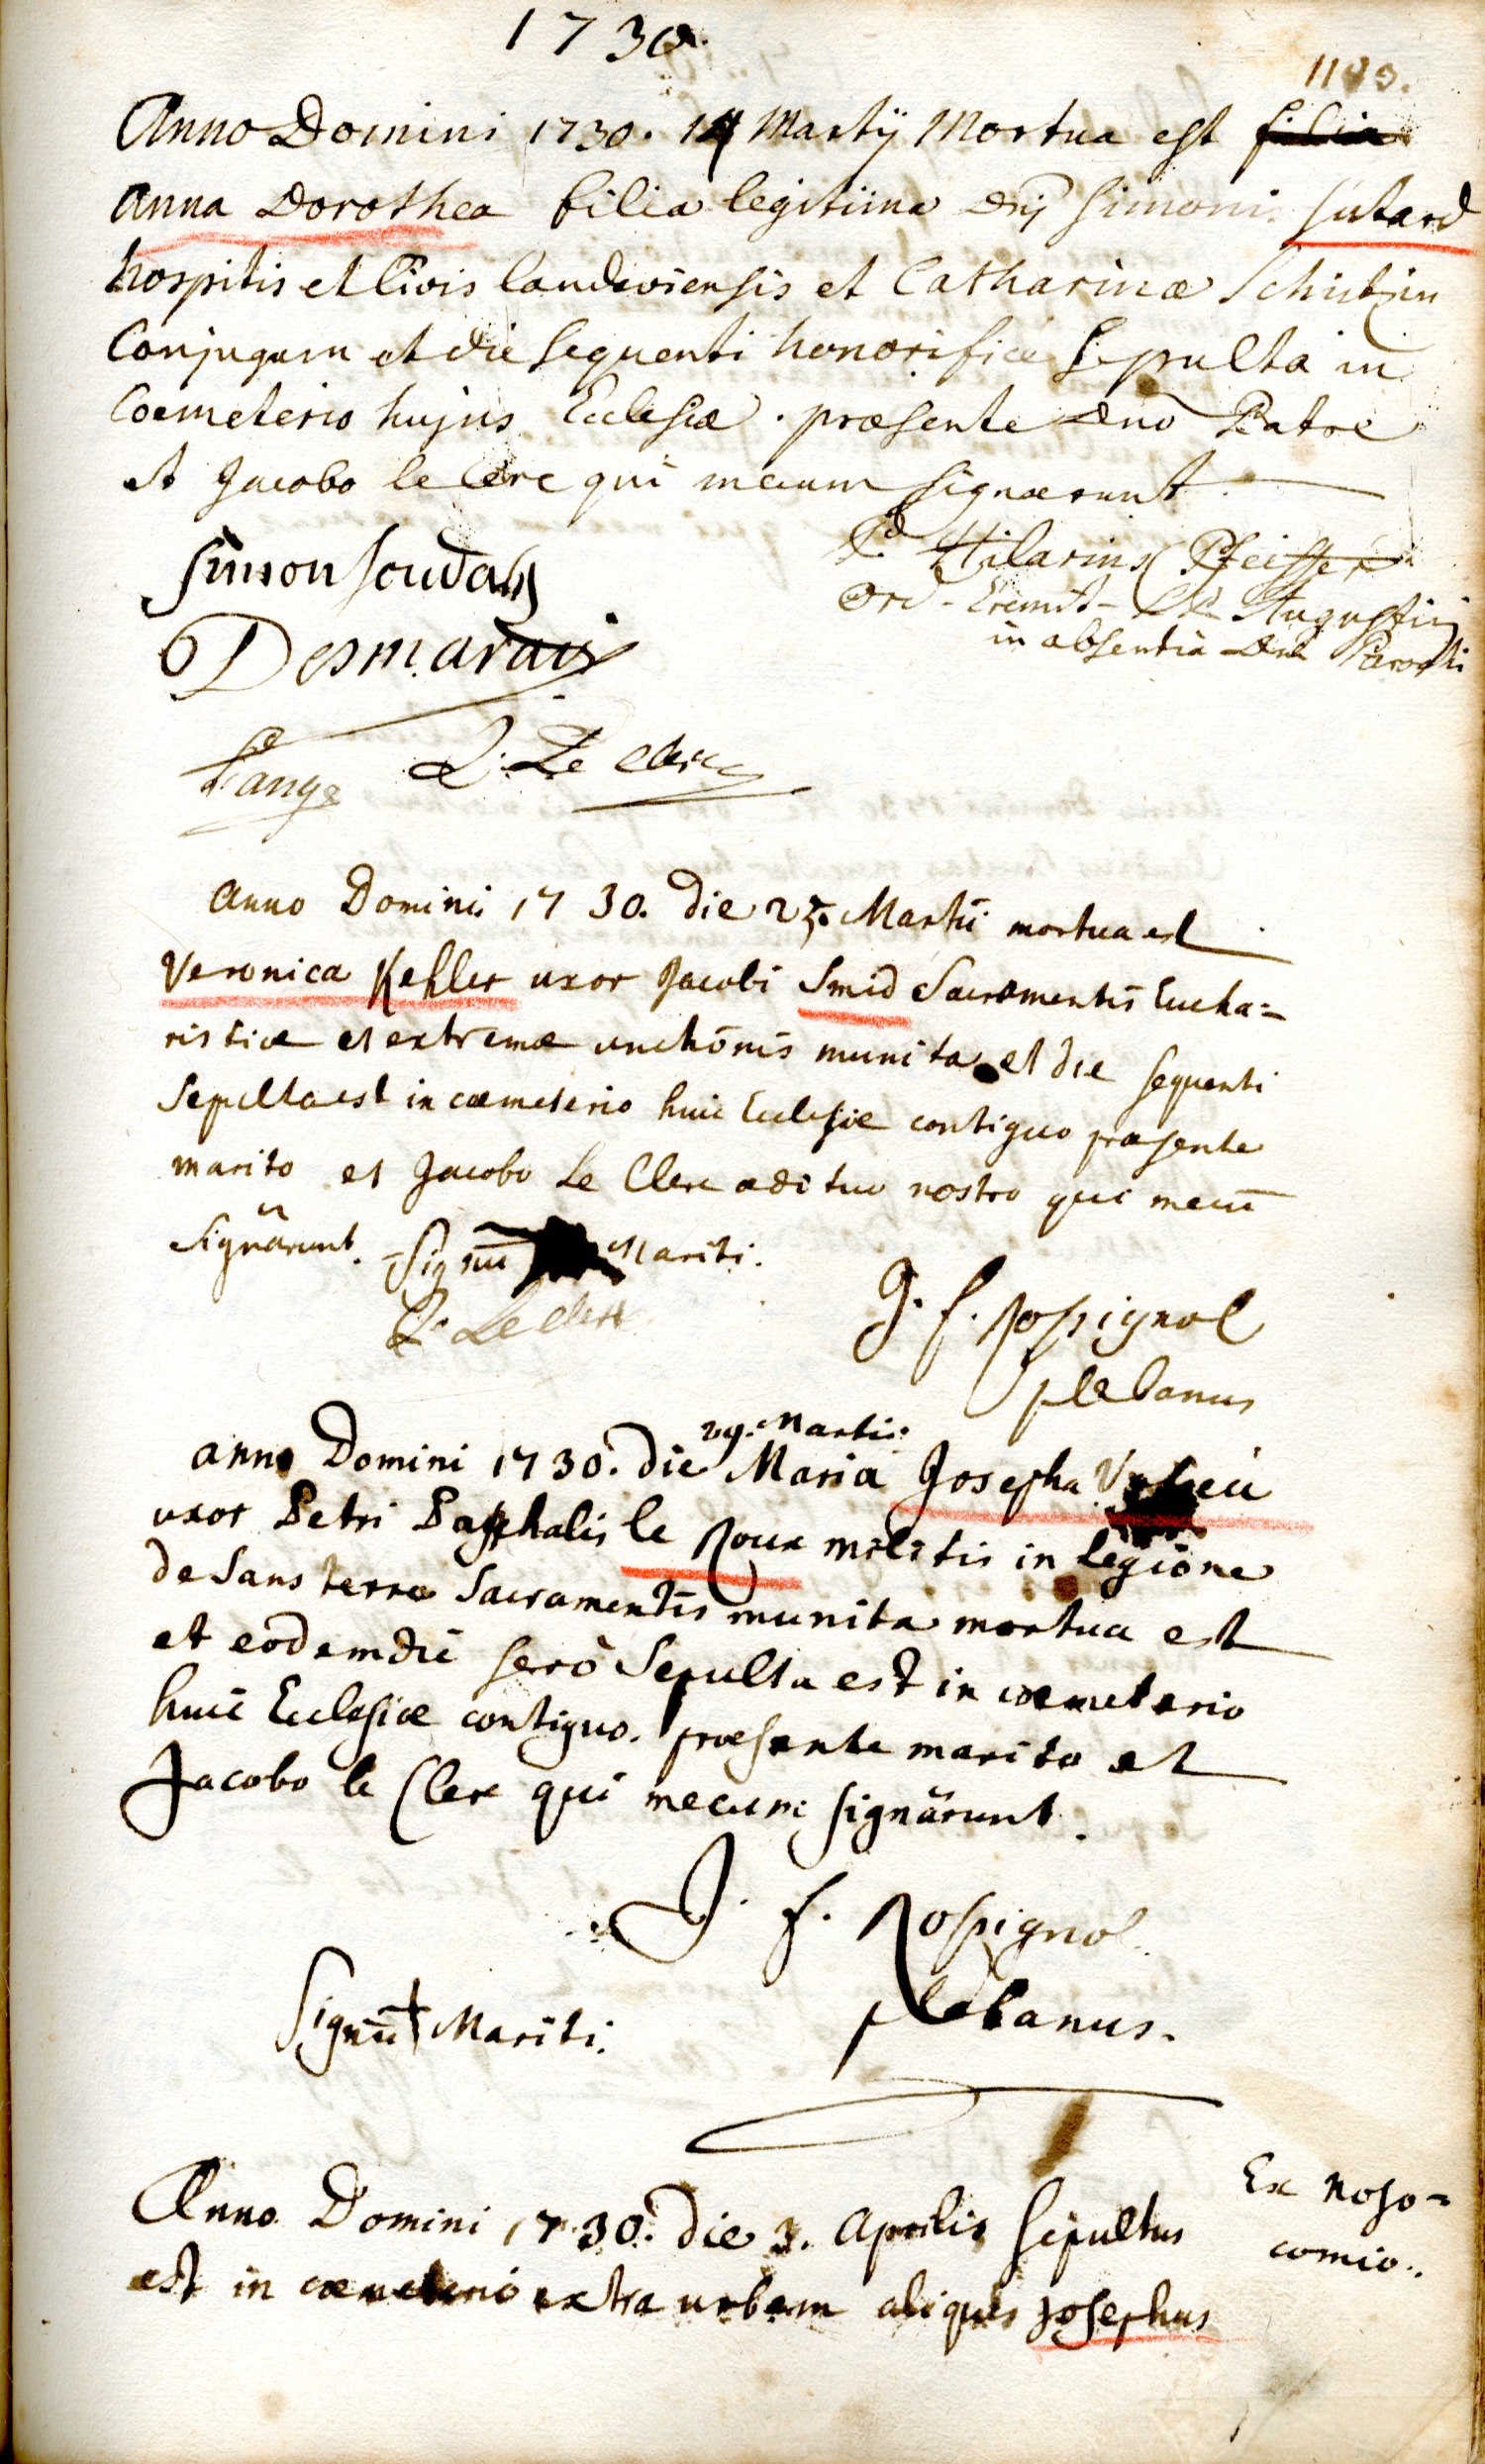 1730.
Anno Domini 1730. 14 Martij Mortua est filia
Anna Dorothea filia legitima Dnj Simonis sutard
hospitis et Civis Landaviensis et Catharinæ Schützin
Conjugum et die sequenti honorificè Sepulta in
Coemeterio hujus Ecclesiæ. præsente Dno Patre
et Jacobo le Clerc qui mecum signaerunt
Simon
P. Hilarius Pfeiffer
Ord. Eremit. S. P. Augustini
in absentia Dni Parochi
Desmarais
Lange J. Le Clerc
Anno Domini 1730. die 25. Martii mortua est
Veronica Kehler uxor Jacobi Smid Sacramentis Eucha=
ristiæ et extremæ unctionis munita et die sequenti
Sepulta est in cæmeterio huic Ecclesiæ contiguo præsente
marito et Jacobo Le Clerc ædituo nostro qui mecū
Signârunt. Signū Mariti.
J. Le Clerc
J. f. Rossignol
plebanus
29. Martii
anno Domini 1730. die Maria Josepha
uxor Petri Paschalis le Roux militis in Legione
de Sansterre Sacramentis munita mortua est
et eodem die serò Sepulta est in cæmeterio
huic Ecclesiæ contiguo. præsente marito et
Jacobo le Clerc qui mecum signârunt.
J. f. Rossignol
plebanus.
Signū + Mariti.
Ex noso=
comio.
Anno Domini 1730. die 3. Aprilis Sepultus
est in cæmeterio extra urbem aliquis Josephus